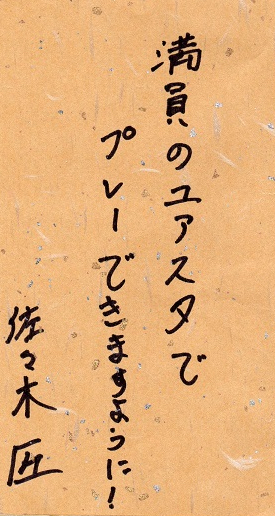 満員のユアスタで
プレーできますように!
佐々木匠